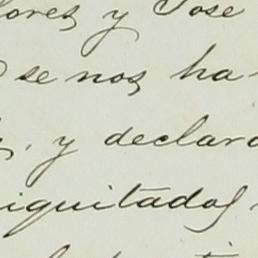 lores y Jose
se nos ha
y declara
iquitados